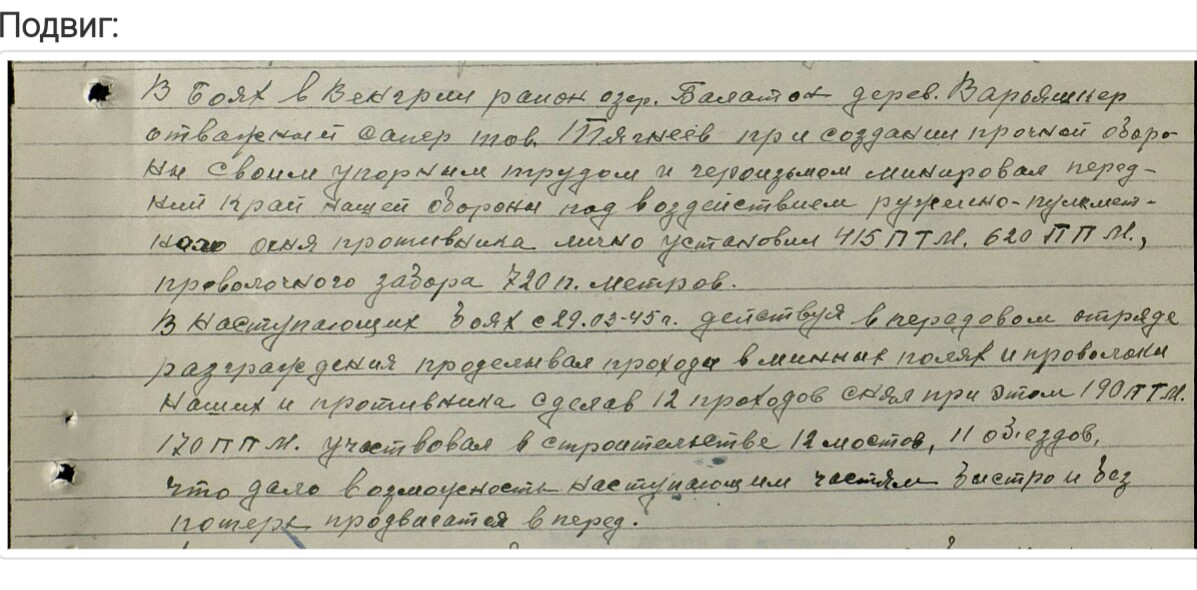 Подвиг:
В боях в Венгрии район озер. Балатон дерев. Варьяшкер
отважный сапер тов. Тягнеев при создании прочной оборо-
ны своим упорным трудом и героизьмом минировал перед-
ний край нашей обороны под воздействием ружечно-пулемет-
ного огня противника лично установил 415 ПТМ. 620 ППМ.,
проволочного забора 720 п. метров.
В наступающих боях с 29.03-45г. действуя в передовом отряде
разграждения проделывал проходы в минных полях и проволоки
наших и противника сделав 12 проходов снял при этом 190 ПТМ.
170 ППМ. участвовал в строительстве 12 мостов, 11 обездов,
что дало возможность наступающим частям быстро и без
потерь продвигатся в перед.